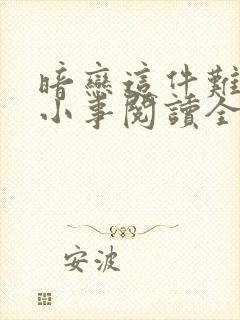 暗戀這件難
小事閱讀全
安波